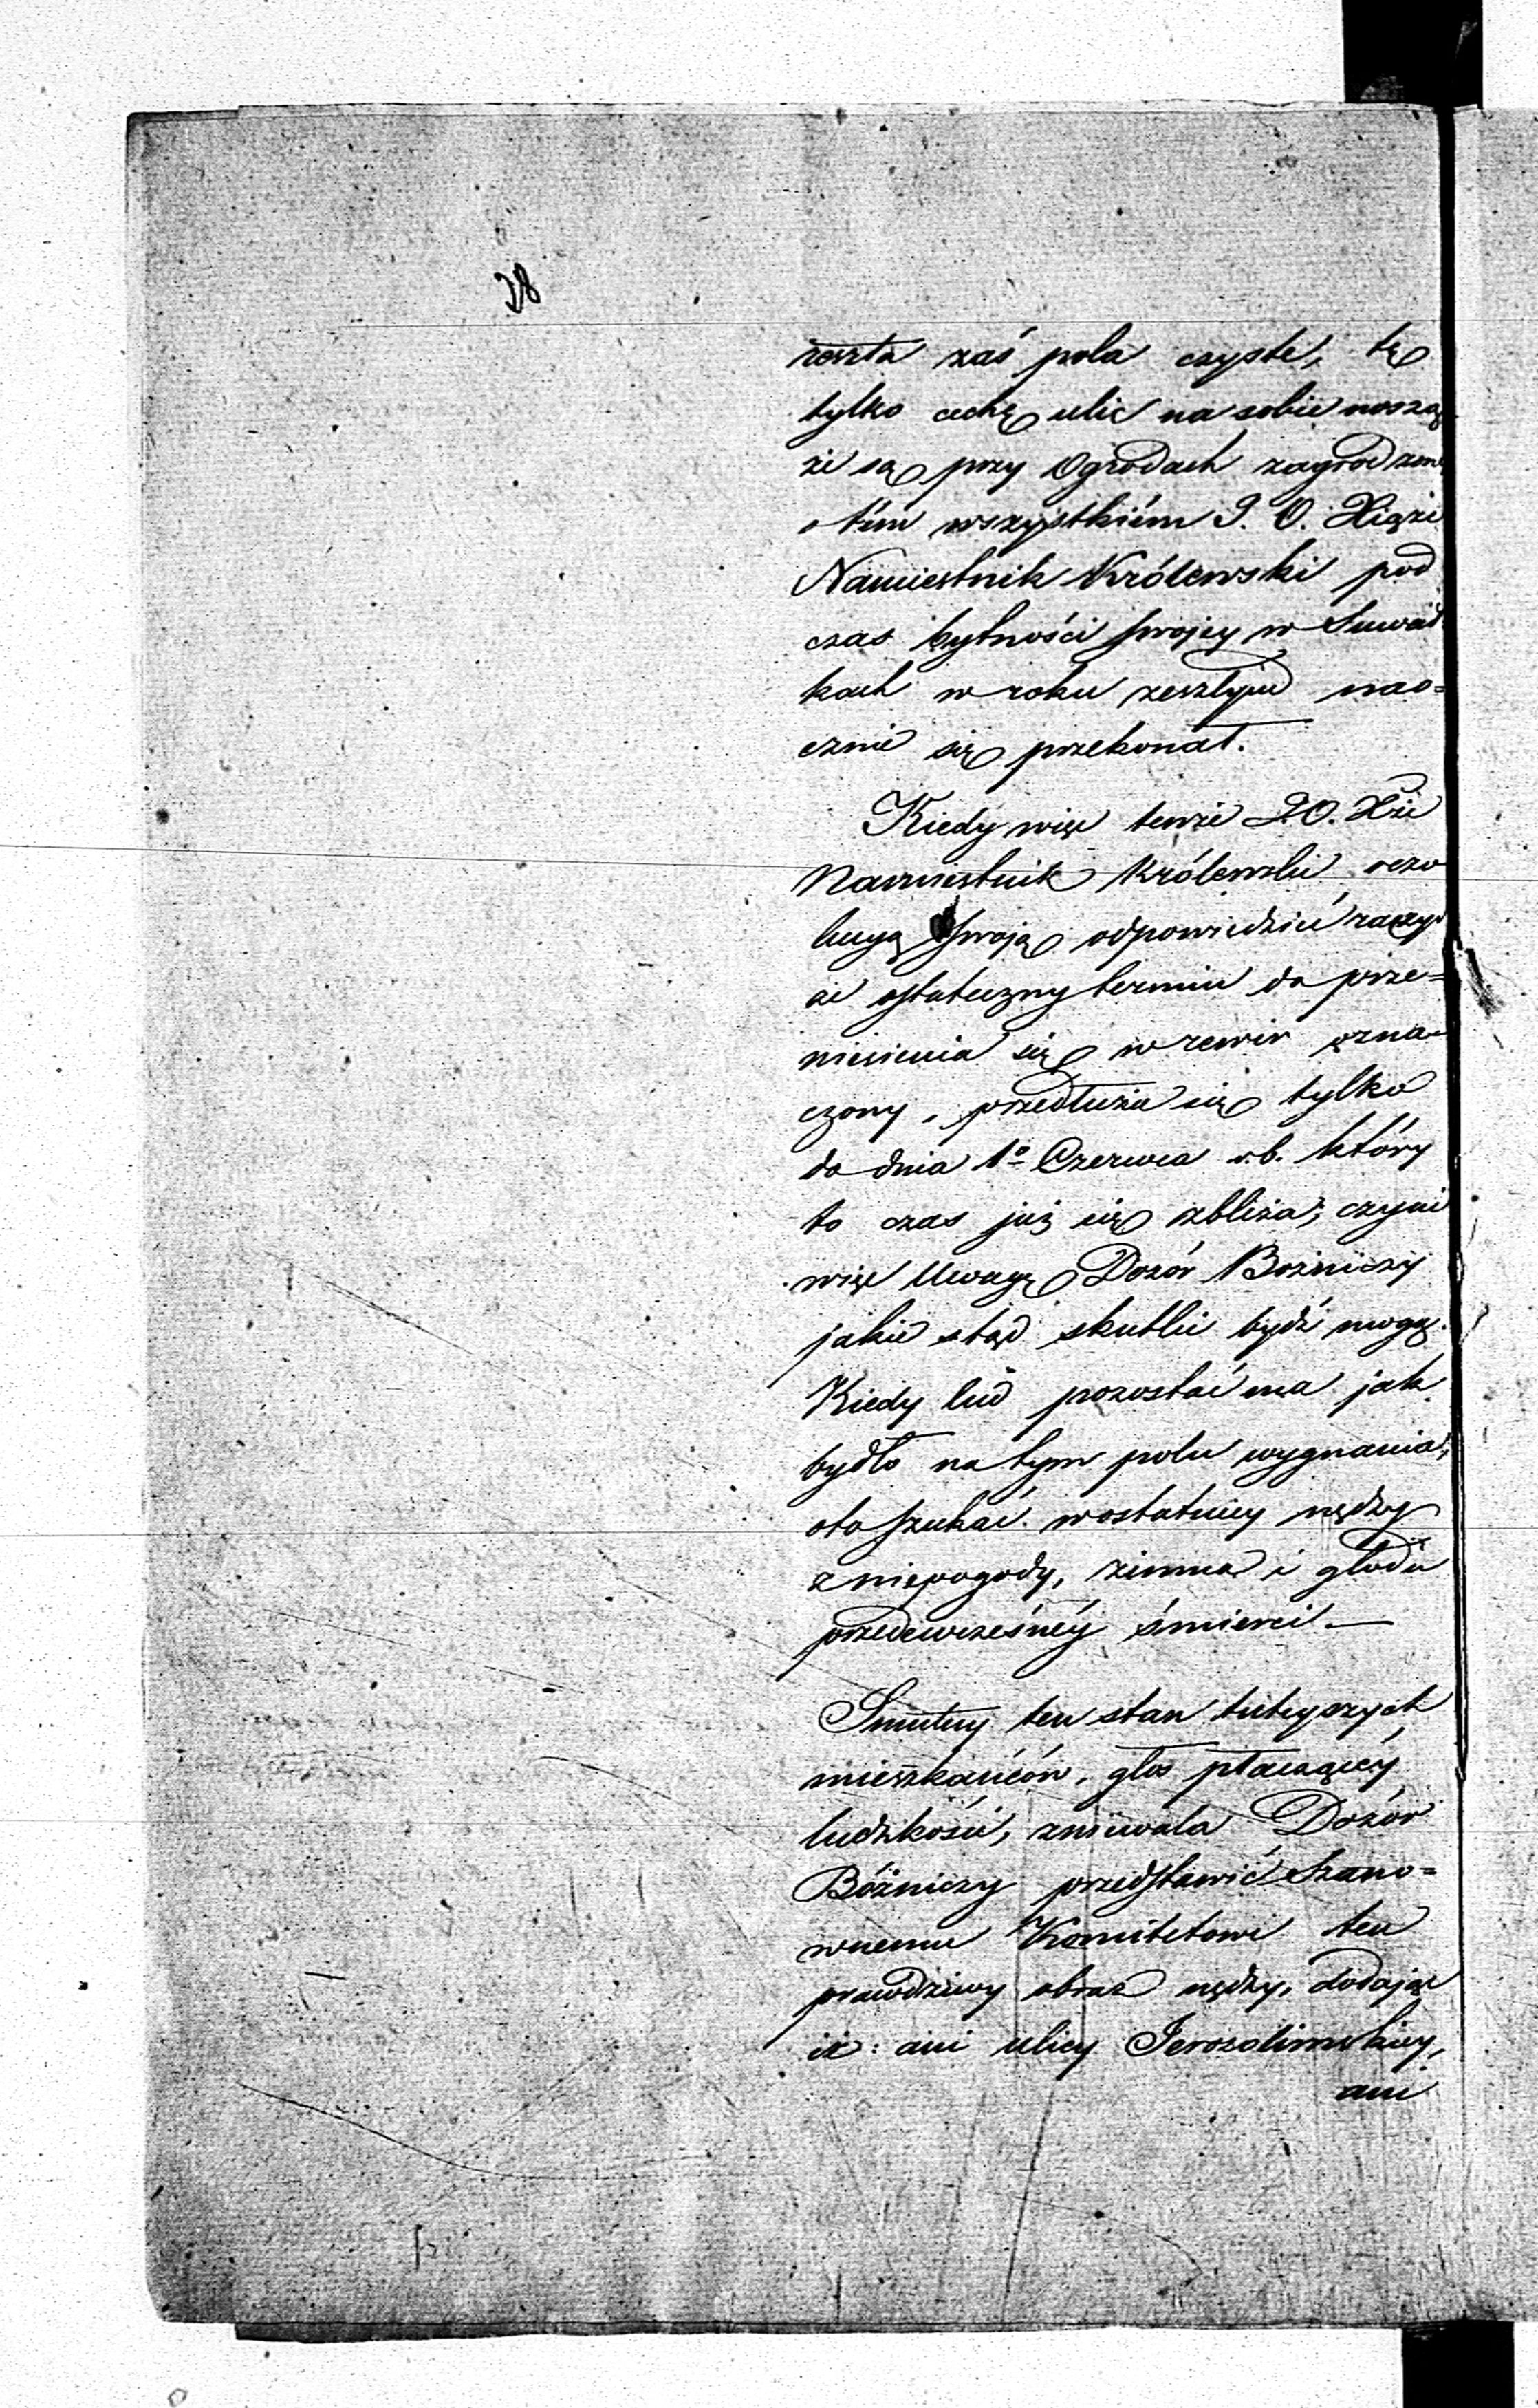 28
reszta zaś pola czyste, tę
tylko cechę ulic na sobie noszą
że są przy Ogrodach zagrodzone
o tém wszystkiém J. O. Xiąże
Namiestnik Królewski pod
czas bytności swojey w Suwał
kach w roku zeszłym nao=
cznie się przekonał.
Kiedy więc tenże J.O. Xże
Namiestnik Królewski rezo
lucyą swoją odpowiedzieć raczył
że ostateczny termin do prze=
niesienia się w rewir ozna=
czony, przedłuża się tylko
do dnia 1º Czerwca r.b. który
to czas już się zbliża; czyni
więc Uwagę Dozór Bożniczy
jakie stąd skutki bydź mogą.
Kiedy lud pozostać ma jak
bydło na tym polu wygnania,
oto szukać w ostatniey nędzy
z niepogody, zimna i głodu
przedewcześnéy śmierci —
Smutny ten stan tuteyszych
mieszkańców, głos płaczącéy
ludzkości, zniewala Dozór
Bóżniczy przedstawić Szano=
wnemu Komitetowi ten
prawdziwy obraz nędzy, dodając
iż: ani ulicy Jerozolimskiey,
ani